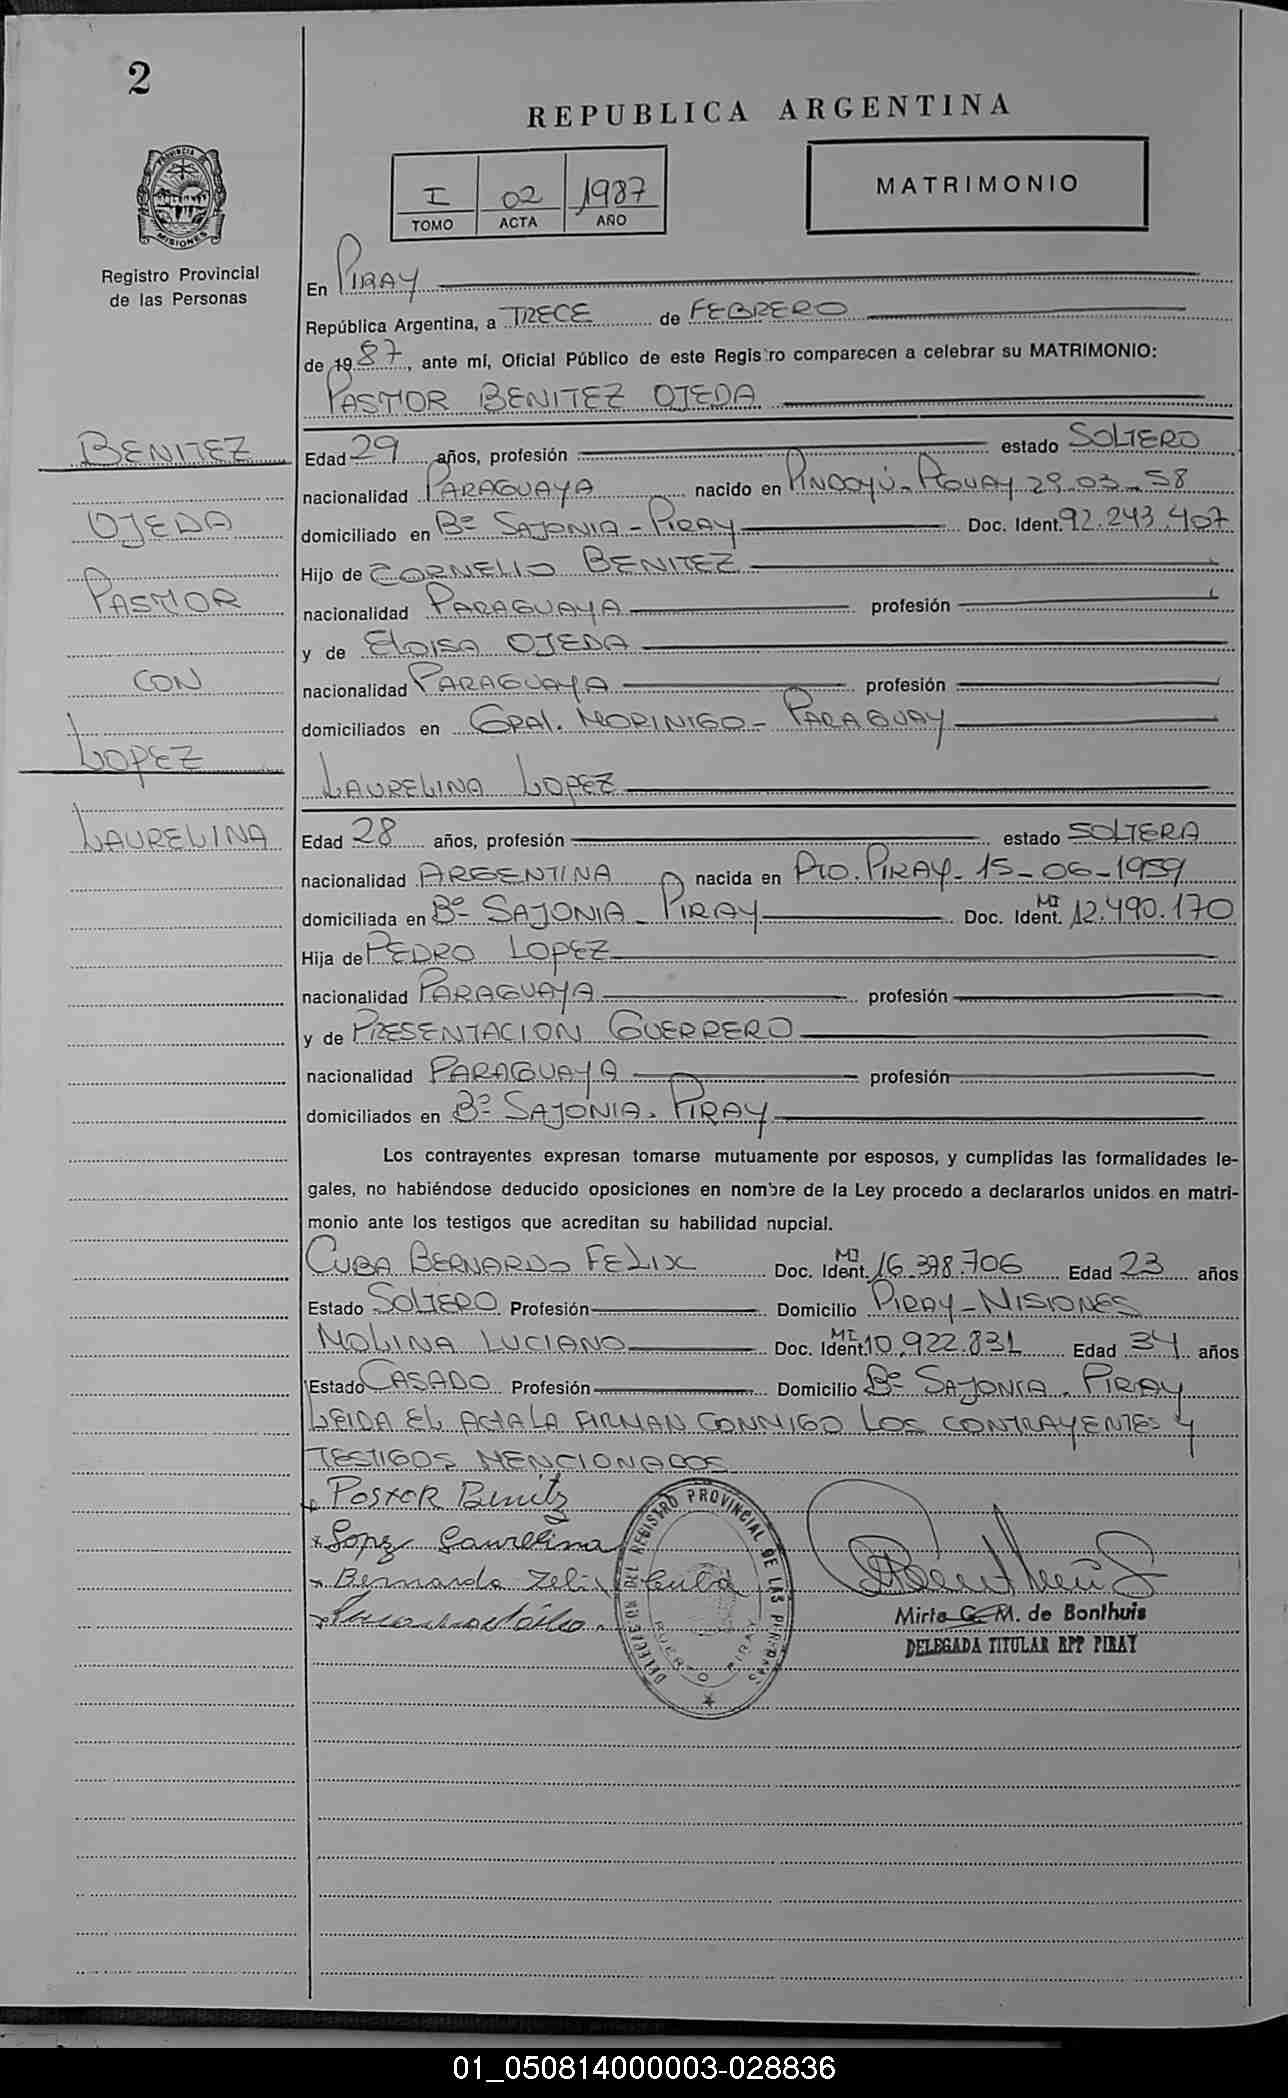 2
REPUBLICA ARGENTINA
I 02 1987
TOMO ACTA AÑO
MATRIMONIO
PROVINCIA DE
MISIONES
Registro Provincial
de las Personas
En PIRAY
República Argentina, a TRECE de FEBRERO
de 1987, ante mí, Oficial Público de este Registro comparecen a celebrar su MATRIMONIO:
PASTOR BENITEZ OJEDA
BENITEZ
OJEDA
PASTOR
CON
LOPEZ
LAURELINA
Edad 29 años, profesión estado SOLTERO
nacionalidad PARAGUAYA nacido en PINDOYÚ - PGUAY 29-03-58
domiciliado en Bº SAJONIA - PIRAY Doc. Ident. 92.243.407
Hijo de CORNELIO BENITEZ
nacionalidad PARAGUAYA profesión
y de ELOISA OJEDA
nacionalidad PARAGUAYA profesión
domiciliados en GRAL. MORINIGO - PARAGUAY
LAURELINA LOPEZ
Edad 28 años, profesión estado SOLTERA
nacionalidad ARGENTINA nacida en PTO. PIRAY - 15-06-1959
domiciliada en Bº SAJONIA - PIRAY Doc. Ident. MI 12.490.170
Hija de PEDRO LOPEZ
nacionalidad PARAGUAYA profesión
y de PRESENTACION GUERRERO
nacionalidad PARAGUAYA profesión
domiciliados en Bº SAJONIA. PIRAY
Los contrayentes expresan tomarse mutuamente por esposos, y cumplidas las formalidades le-
gales, no habiéndose deducido oposiciones en nombre de la Ley procedo a declararlos unidos en matri-
monio ante los testigos que acreditan su habilidad nupcial.
CUBA BERNARDO FELIX Doc. Ident. MI 16.398.706 Edad 23 años
Estado SOLTERO Profesión Domicilio PIRAY - MISIONES
MOLINA LUCIANO Doc. Ident. MI 10.922.831 Edad 34 años
Estado CASADO Profesión Domicilio Bº SAJONIA. PIRAY
LEIDA EL ACTA LA FIRMAN CONMIGO LOS CONTRAYENTES Y
TESTIGOS MENCIONADOS
Pastor Benitz
Lopez Laurelina
Bernardo Felix Cuba
DELEGACION DEL REGISTRO PROVINCIAL DE LAS PERSONAS
PUERTO PIRAY
Mirta G. M. de Bonthuis
DELEGADA TITULAR RPP PIRAY
01_050814000003-028836